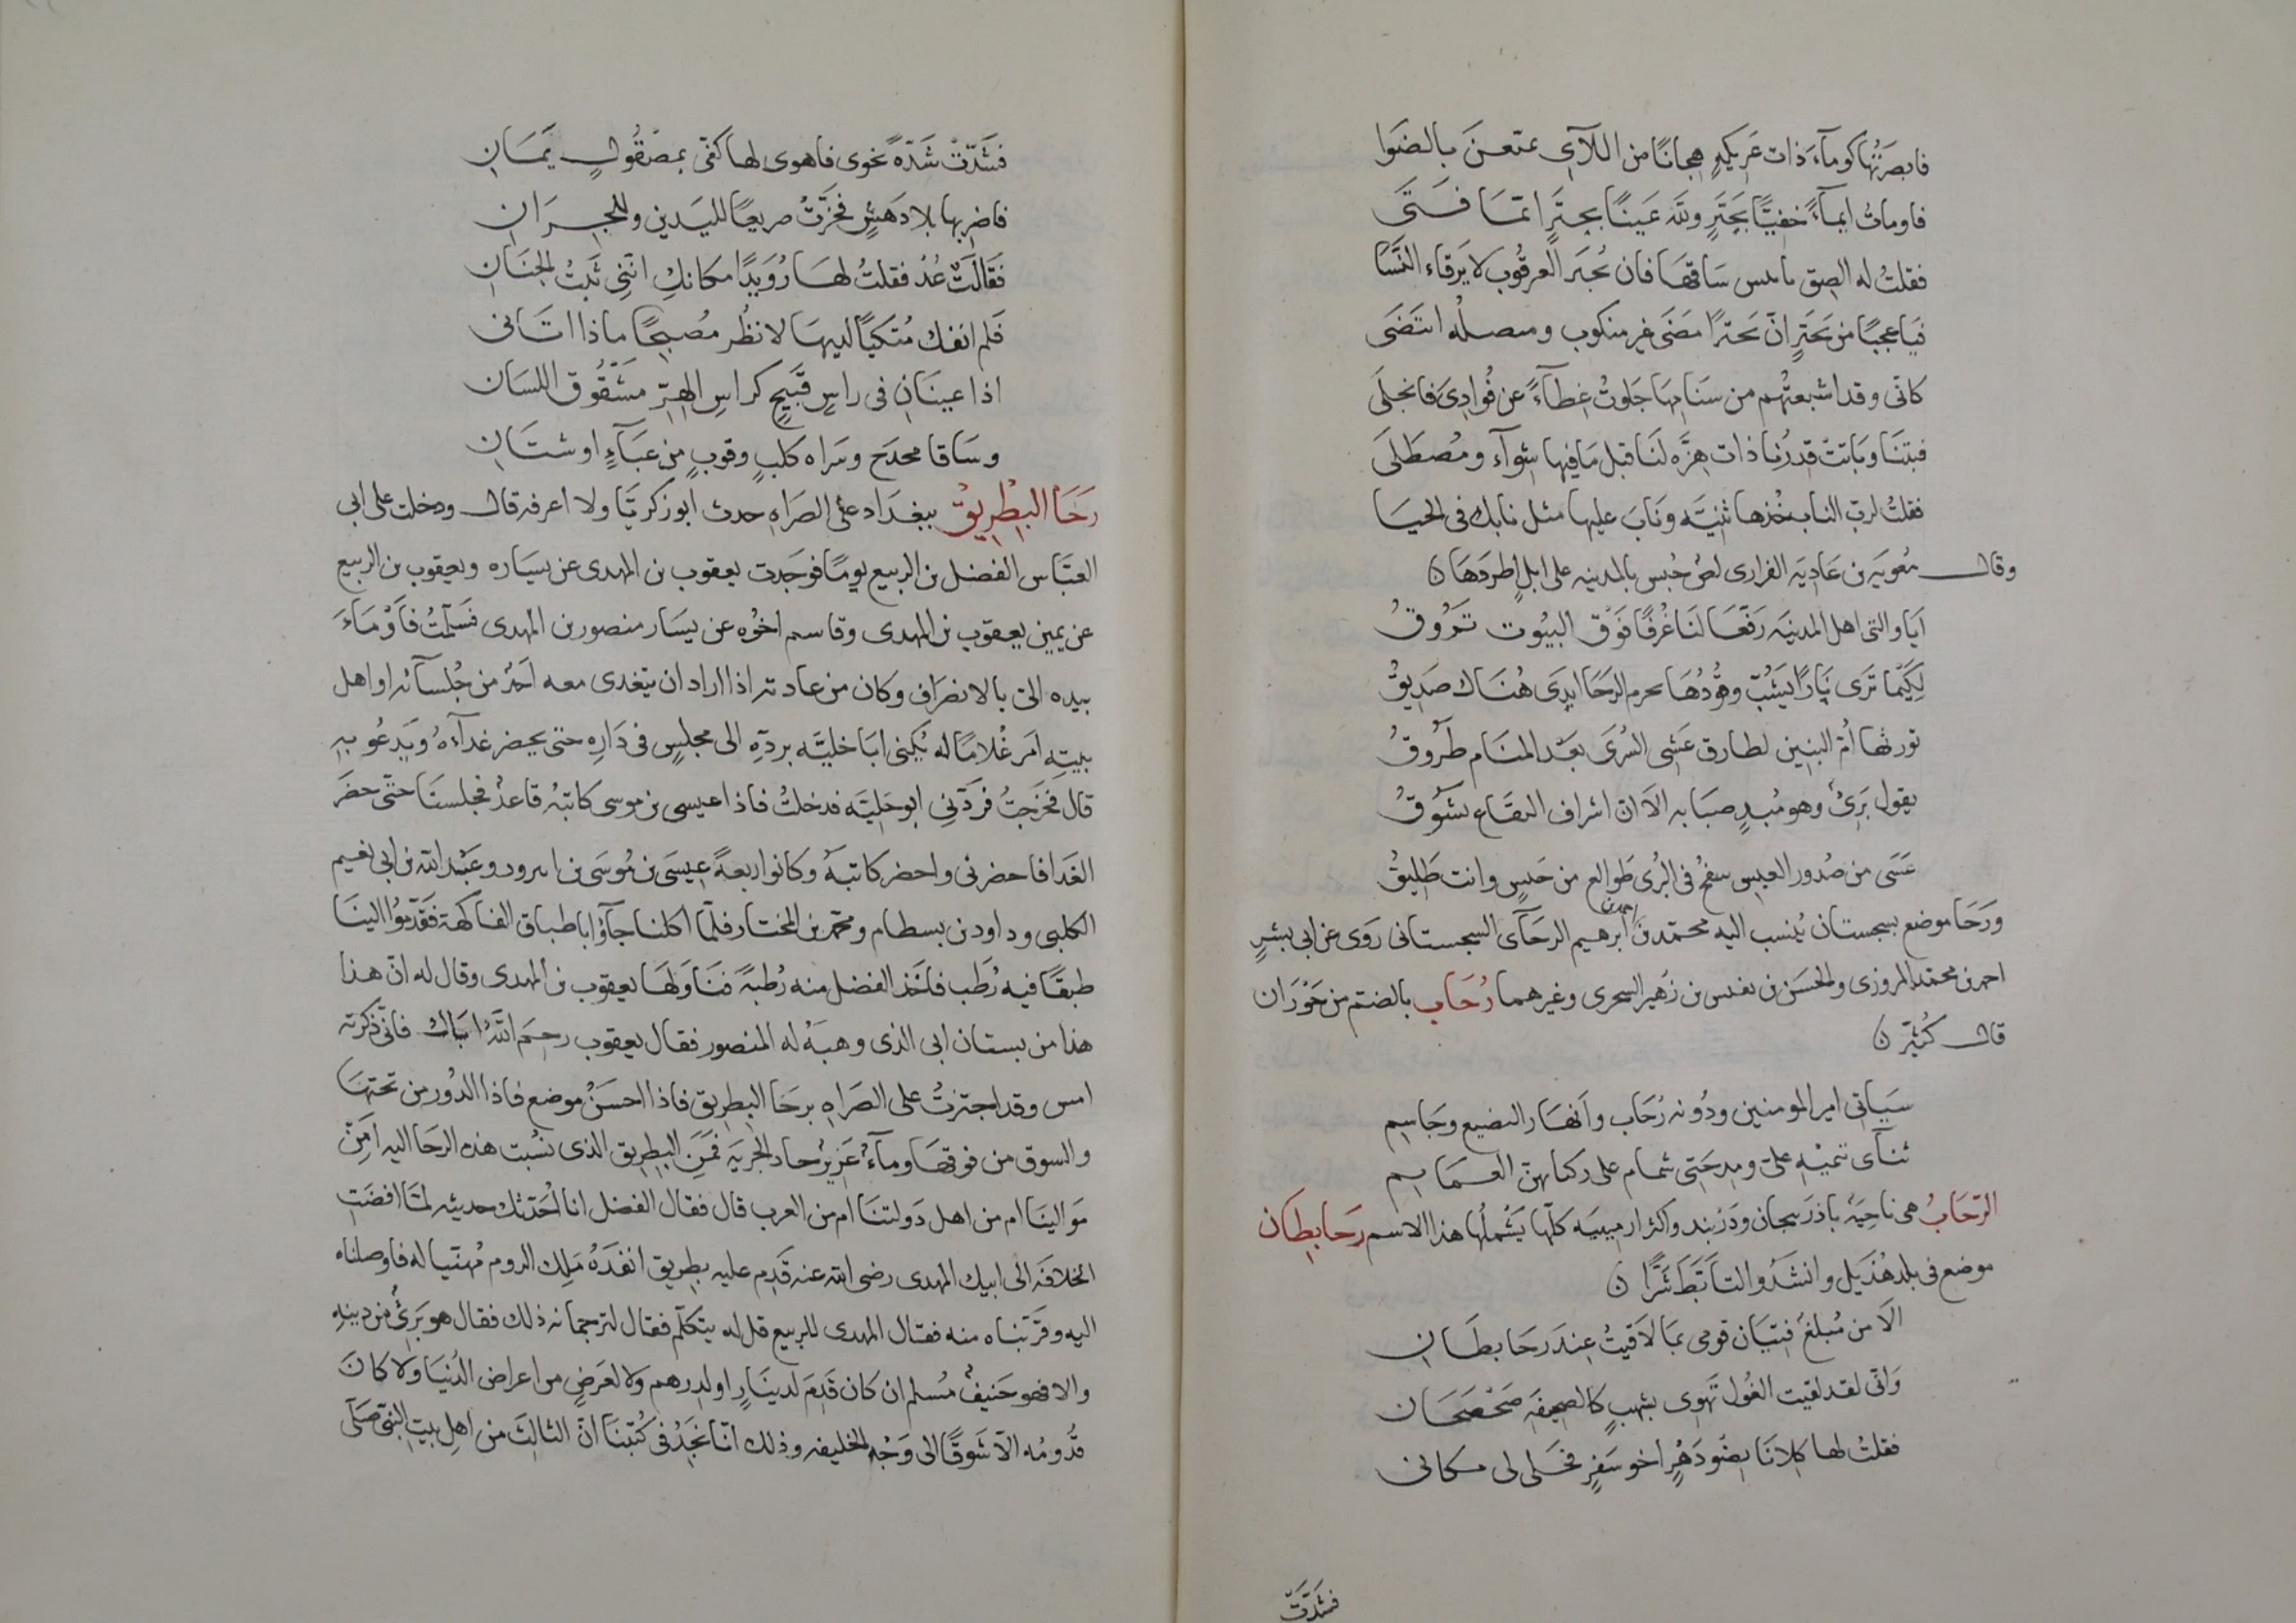 فابصرتُها كومآءَ ذات عَريكةٍ هِجانًا من اللآئى تمتّعنَ بالضوَا
فاومات ايمآءً خفيًّا بحَبترٍ وللّه عَينًا بحبترٍ ايّمَا فَتَى
فقلتُ له الصق بايبس سَاقهَا فان يُجبَر العرقُوب لا يَرقاء النَّسَا
فيَا عجبًا من حَبترٍ انّ حَبترًا مَضَى غير منكوب ومنصله انتَضَى
كانّى وقد اشبعتُهم من سَنامِهَا جَلوتُ غِطآءً عن فُوادِىَ فانجلَى
فبتنَا وبَاتتْ قِدرُنا ذات هِزّه لنَا قبل مَا فيها شِوآء ومُصطَلَى
فقلتُ لربّ الناب خُذها ثنيّه ونَابَ عليها مثل نابك فى الحيَا
وقال معُويَه بن عَادِيَه الفزارى لصّ حُبس بالمدينه على ابلٍ اطردهَا ن
اَيَا والىَ اهل المدينَه رَفّعَا لنَا غُرفًا فَوْق البيُوت تَرُوقُ
لِكَيْما نَرى نَارًا يَشُبّ وقُودُهَا بحزم الرَحَا ايدى هُنَاك صَديقُ
تورثها اُمّ البنِين لطارق عَشى السُرَى بَعْد المنَام طَرُوقُ
يقول بَرِىٌ وهو مُبدٍ صبَابه الاَ ان اشراف البقَاع يشَوقُ
عَسَى من صُدور العيس ينفخُ فى البُرى طَوالع من حَبسٍ وانت طَليقُ
ورَحَا موضع بسجستان يُنسب اليه محمّد بن احمد بن ابرهيم الرحَآى السجستانى رَوَى عن ابى بشرٍ
احمد بن محمّد المروزى والحسَن بن نفيس بن زهير السجزى وغيرهما رُحَاب بالضتم من حَوْرَان
قال كُثَيّر ن
سيَاتى امير المومنين ودُونه رُحَاب وانهَار البضيع وجَاسِم
ثنآى تنميْه علىّ ومِدحَتى شمام على ركبانهنّ العمَايم
الرّحَابُ هى ناحِيَةٌ باذرَبيجان ودَرْبند واكثر ارمينيَه كلّها يَشْملُها هذا الاسم رَحَا بطان
موضع فى بلد هُذَيل وانشَدُوا لتأبّطَ شَرًّا ن
الاَ من مُبلغٌ فتيَان قومى بما لاَقيتُ عِندَ رَحَا بطَان
وَانّى لقد لقيت الغُول تَهوِى بشهبٍ كالصحيفَه صَحْصَحَان
فقلتُ لها كِلانَا نِضْو دَهْرٍ اخو سَفرٍ فخَلى لى مكانى
فشَدَّتْ
فشَدَّتْ شَدّةً نحوى فاهوى لها كفّى بمصْقُولٍ يَمَانِ
فاضربها بلا دَهَشٍ فخرَّتْ صريعًا لليَدين وللجِرَان
فقَالَتْ عُدْ فقلتُ لهَا رُوَيدًا مكانكِ انّنى ثَبْتُ الجنَانِ
فَلم انفك مُتكيًا لديهَا لانظُر مُصبحًا ماذا اتَانى
اذا عينَانِ فى راسٍ قبَيحٍ كراسِ الهِرّ مَشْقُوق اللسَان
وسَاقا مخدج وسَراه كلبٍ وثوبٍ من عبَآءٍ او شنَانِ
رَحَا البِطْريقْ ببغدَاد على الصَراه حدث ابو زكريّا ولا اعرفه قال ودخلت على ابى
العبَّاس الفضل بن الربيع يومًا فوَجَدت يعقوب بن المهدى عن يسَاره ويعقوب بن الربيع
عن يمين يعقوب بن المهدى وقاسم اخُوه عن يسَار منصور بن المهدى فسَلّمتُ فاَوْمَاءَ
بيده الىّ بالانصرَاف وكان من عادته اذا اراد ان يتغدى معه احَدٌ من جُلسآئه او اهل
بيتِهِ امَر غُلامًا له يُكنى ابَا خليَّه بردّه الى مجلسٍ فى دَارِه حتى يحضر غدآءهُ ويَدعُو بهِ
قال فخرَجتُ فردّنى ابو حَليّه فدخلتُ فاذا عيسى بن موسى كاتبُه قاعدٌ فجلسنَا حتّى حضَرَ
الغَدا فاحضرنى واحضر كاتبَهُ وكانوا اربعةً عِيسَى بن مُوسَى بن ابرود وعَبْد الله بن ابى نعيم
الكلبى وداود بن بسطام ومحمّد بن المختار فلّما اكلنا جآؤا باطباق الفاكهة فَقدّموُا الينَا
طبقًا فيه رُطَب فاخَذ الفضل منه رُطبَةً فنَاوَلهَا يعقوب بن المهدى وقال له انّ هذا
هذا من بستان ابى الذى وهبَهُ له المنصور فقال يعقوب رحِمَ اللّهُ ابَاك فانّى ذكرته
امس وقد اجتزتُ على الصرَاه برحَا البطريق فاذا احسَنُ موضع فاذا الدُور من تحتهَا
والسوق من فوقهَا ومآءٌ غَزيرٌ حاد الجريَه فمَنِ البطريق الذى نسُبت هذه الرحَا اليه اَمِنْ
مَوَالينَا ام من اهل دَولتنَا ام من العرب قال فقال الفضل انا اُحَدّثك حديثه لمّا افضَتِ
الخلافَه الى ابيك المهدى رضى الله عنه قدم عليه بطريق انفَدَهُ مَلِك الروم مُهنّيا له فاوصلناه
اليه وقرّبنَاه منه فقال المهدى للربيع قل له يتكلّم فقال لترجمانه ذلك فقال هو بَرِىٌ من دينِهِ
والا فهو حَنيفٌ مُسلم ان كان قَدِمَ لدينَارٍ او لدرهم ولا لعَرَضٍ من اعراض الدُنيَا ولا كانَ
قُدُومُه الاّ شَوقًا الى وَجْه الخليفه وذلك انّا نَجِدُ فى كُتبنَا انّ الثالثَ من اهلِ بيت النبى صَلّى